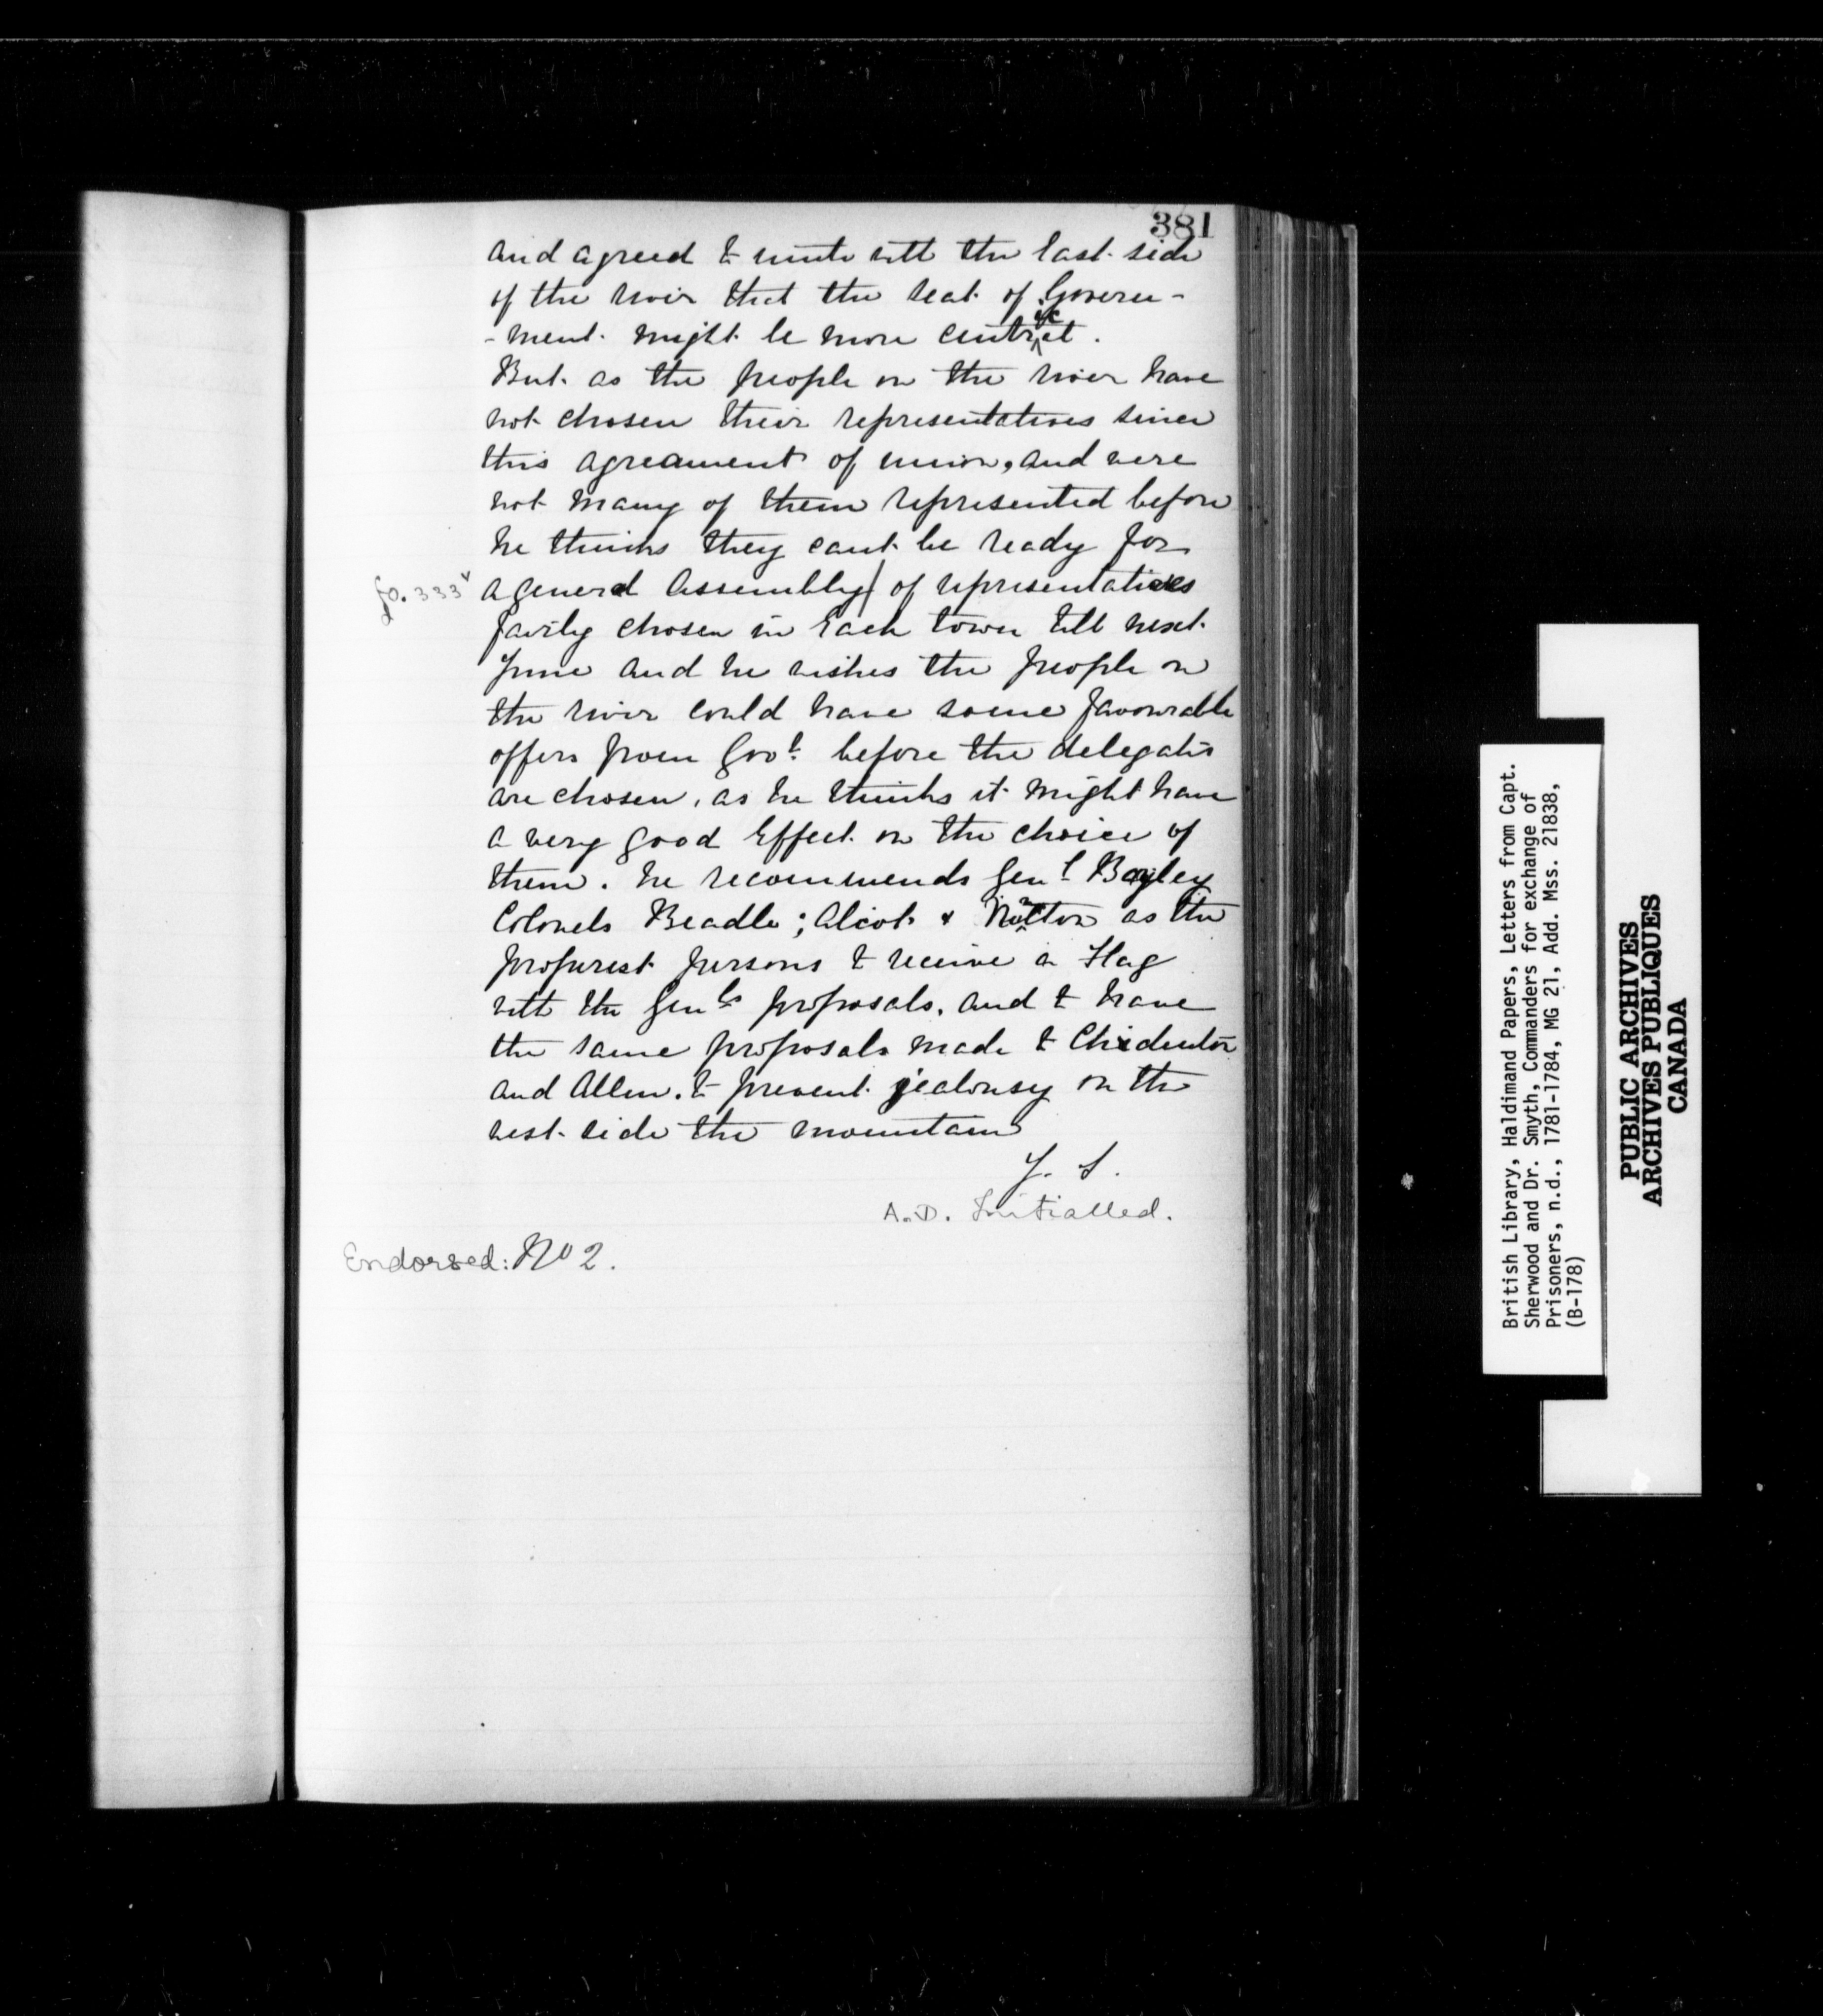 381
and agreed to unite with the East side
of the river that the seat of Govern-
-ment might be more centrical.
But as the people on the river have
not chosen their representatives since
this agreament of union, and were
not many of them represented before
he thinks they cant be ready for
fo. 333v a general Assembly/ of representatives
fairly chosen in Each town till next
June and he wishes the people on
the river could have some favourable
offers from Govt before the delegates
are chosen, as he thinks it might have
a very good Effect on the choice of
them. he recommends Genl Bayley
Colonels Beadle; Alcot & as the
properest persons to receive a Flag
with the Genls proposals, and to have
the same proposals made to Chidenton
and Allen. to prevent jealousy on the
west side the mountain
J. S.
A.D. Initialled.
Endorsed: No 2.
British Library, Haldimand Papers, Letters from Capt.
Sherwood and Dr. Smyth, Commanders for exchange of
Prisoners, n.d., 1781-1784, MG 21, Add. Mss. 21838,
(B-178)
PUBLIC ARCHIVES
ARCHIVES PUBLIQUES
CANADA